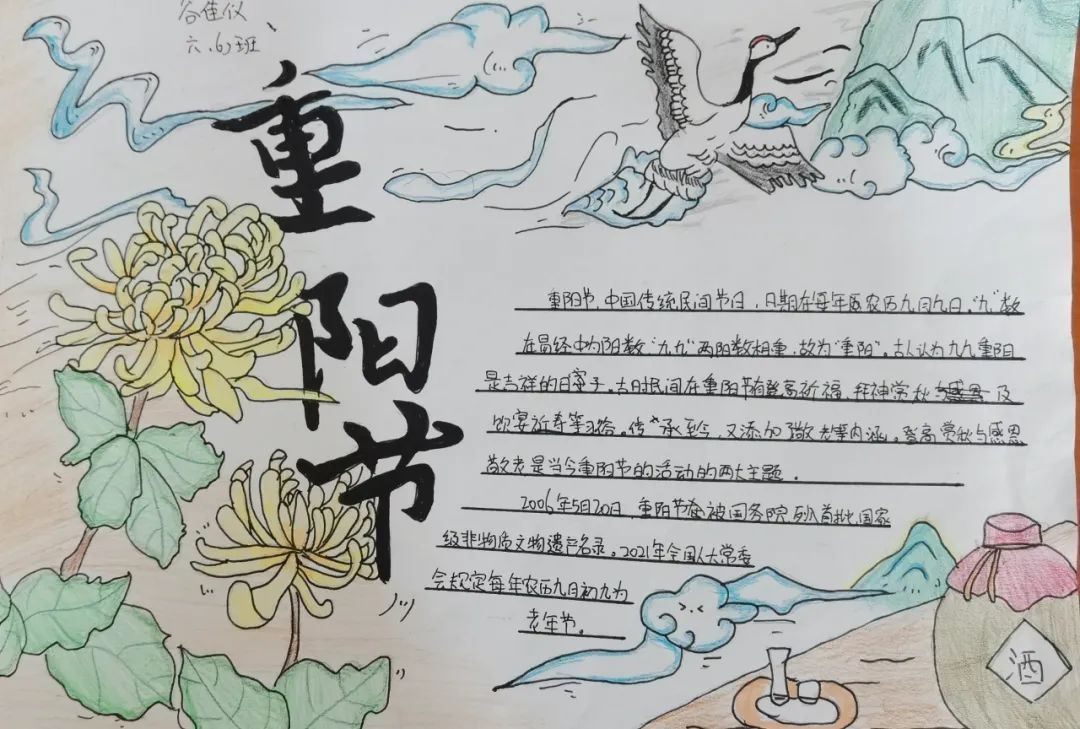 谷佳仪
六.(6)班
重阳节
重阳节,中国传统民间节日,日期在每年农历九月九日。“九”数
在易经中为阳数“九九”两阳数相重,故为“重阳”。古人认为九九重阳
是吉祥的日子。古时民间在重阳节有登高祈福、拜神赏秋 及
饮宴祈寿等习俗。传承至今,又添加了敬老等内涵。登高赏秋与感恩
敬老是当今重阳节的活动的两大主题.
2006年5月20日,重阳节被国务院列入首批国家
级非物质文物遗产名录。2021年全国人大常委
会规定每年农历九月初九为
老年节。
酒